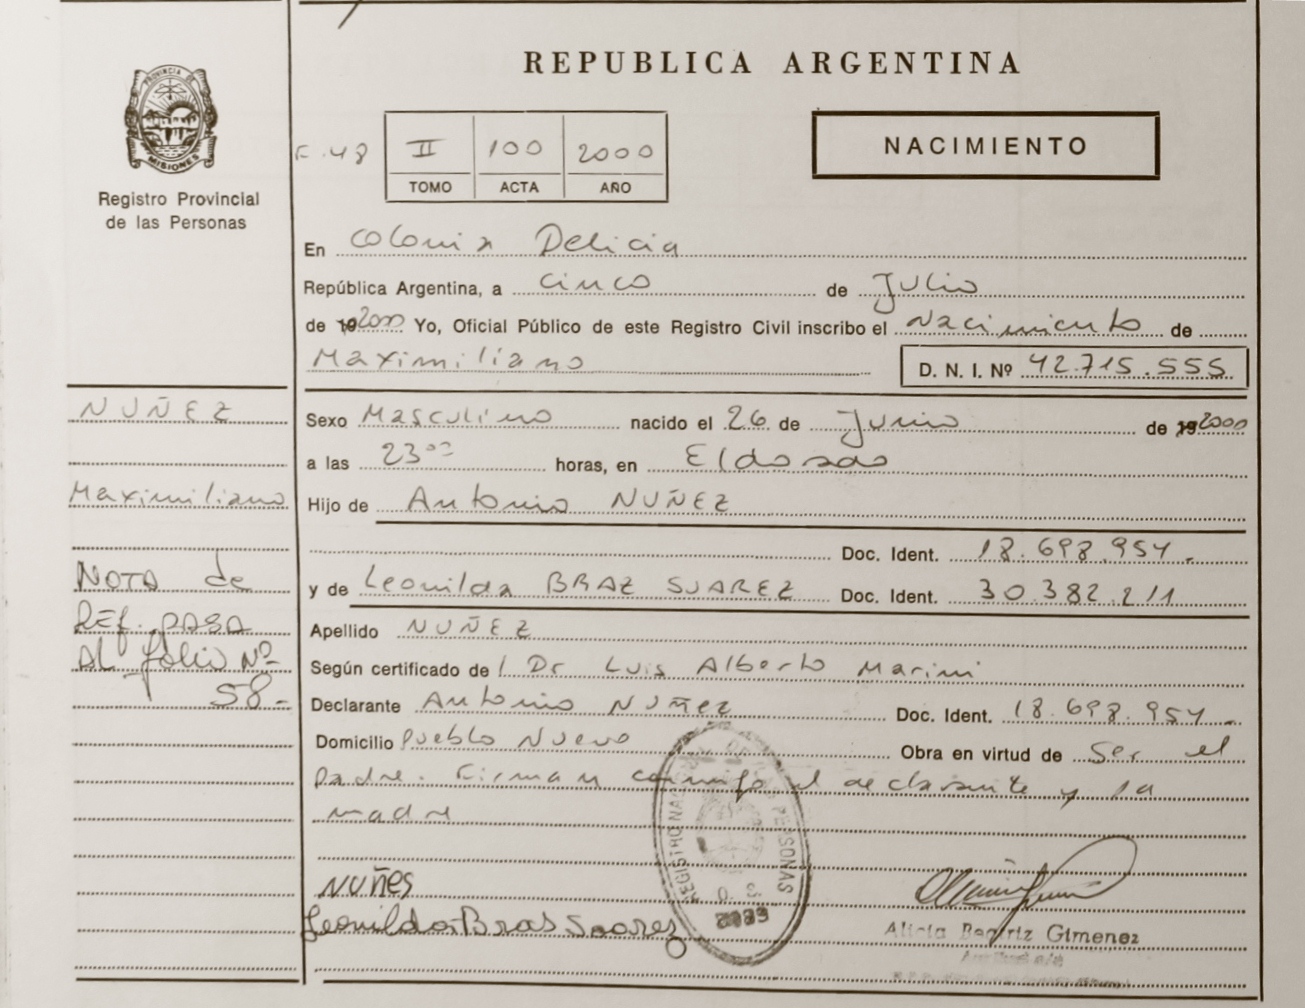 REPUBLICA ARGENTINA
PROVINCIA DE
MISIONES
Registro Provincial
de las Personas
F. 48
II 100 2000
TOMO ACTA AÑO
NACIMIENTO
En Colonia Delicia
República Argentina, a cinco de Julio
de 192000 Yo, Oficial Público de este Registro Civil inscribo el Nacimiento de
Maximiliano D. N. I. Nº 42.715.555
NUÑEZ
Maximiliano
NOTA de
REf. PASA
Al folio Nº
58-
Sexo Masculino nacido el 26 de Junio de 192000
a las 23⁰⁰ horas, en Eldorado
Hijo de Antonio NUÑEZ
Doc. Ident. 18.698.954-
y de Leonilda BRAZ SUAREZ Doc. Ident. 30.382.211
Apellido NUÑEZ
Según certificado de / Dr Luis Alberto Marini
Declarante Antonio NUÑEZ Doc. Ident. 18.698.954-
Domicilio Pueblo Nuevo Obra en virtud de Ser el
padre. Firman conmigo el declarante y la
madre
REGISTRO NACIONAL DE LAS PERSONAS
NUÑES
Leonilda Bras Soarez
Alicia Beatriz Gimenez